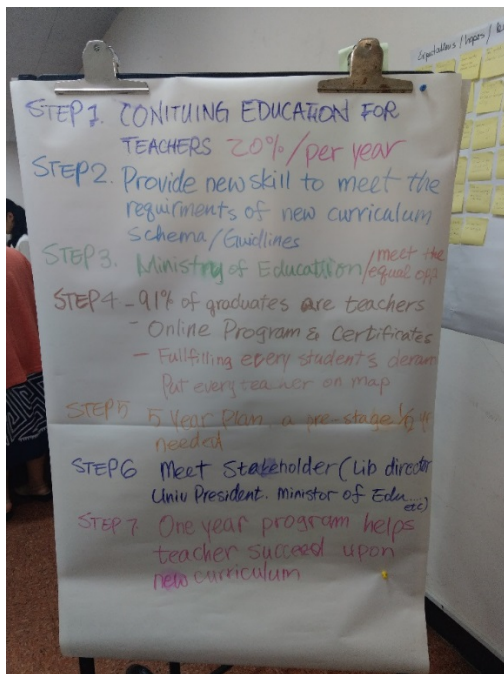 STEP 1. CONITUING EDUCATION FOR
TEACHERS 20%/per year
STEP 2. Provide new skill to meet the
requirments of new curriculum
Schema/Guidlines
STEP 3. Ministry of Education/meet the
equal
STEP 4 - 91% of graduates are teachers
- Online Program & Certificates
- Fullfilling every students
Put every teacher on map
STEP 5 5 Year Plan a pre-stage
needed
STEP 6 Meet Stakeholder (Lib director
Univ President. Ministor of Edu....
etc)
STEP 7 One year program helps
teacher succeed upon
new curriculum
Expectations / hopes /